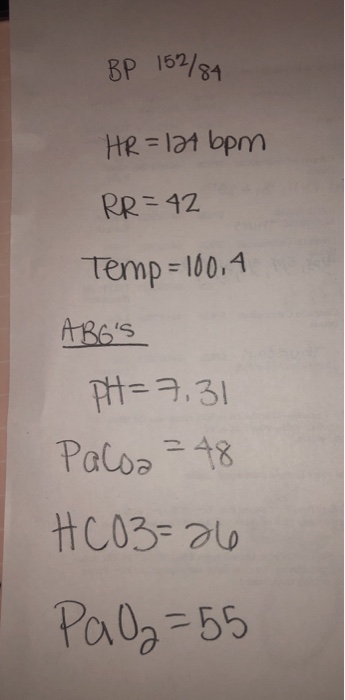 BP 152/84
HR = 124 bpm
RR = 42
Temp = 100.4
ABG's
PH = 7.31
PaCO2 = 48
HCO3 = 26
PaO2 = 55